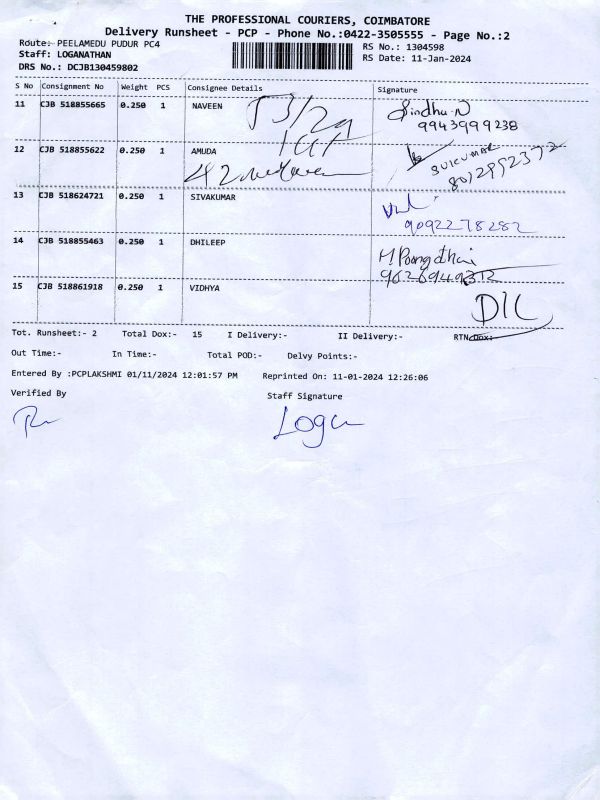 THE PROFESSIONAL COURIERS, COIMBATORE
Delivery Runsheet - PCP - Phone No.:0422-3505555 - Page No.:2
Route:- PEELAMEDU PUDUR PC4 RS No.: 1304598
Staff: LOGANATHAN RS Date: 11-Jan-2024
DRS No.: DCJB130459802
S No Consignment No Weight PCS Consignee Details Signature
11 CJB 518855665 0.250 1 NAVEEN Sindhu.N
9943999238
12 CJB 518855622 0.250 1 AMUDA SUKUMAR
8012952372
13 CJB 518624721 0.250 1 SIVAKUMAR
9092278282
14 CJB 518855463 0.250 1 DHILEEP M Poongothai
15 CJB 518861918 0.250 1 VIDHYA D/L
Tot. Runsheet:- 2 Total Dox:- 15 I Delivery:- II Delivery:- RTN Dox:
Out Time:- In Time:- Total POD:- Delvy Points:-
Entered By :PCPLAKSHMI 01/11/2024 12:01:57 PM Reprinted On: 11-01-2024 12:26:06
Verified By Staff Signature